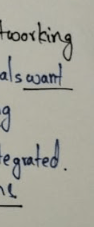 tworking
als want
g
tegrated.